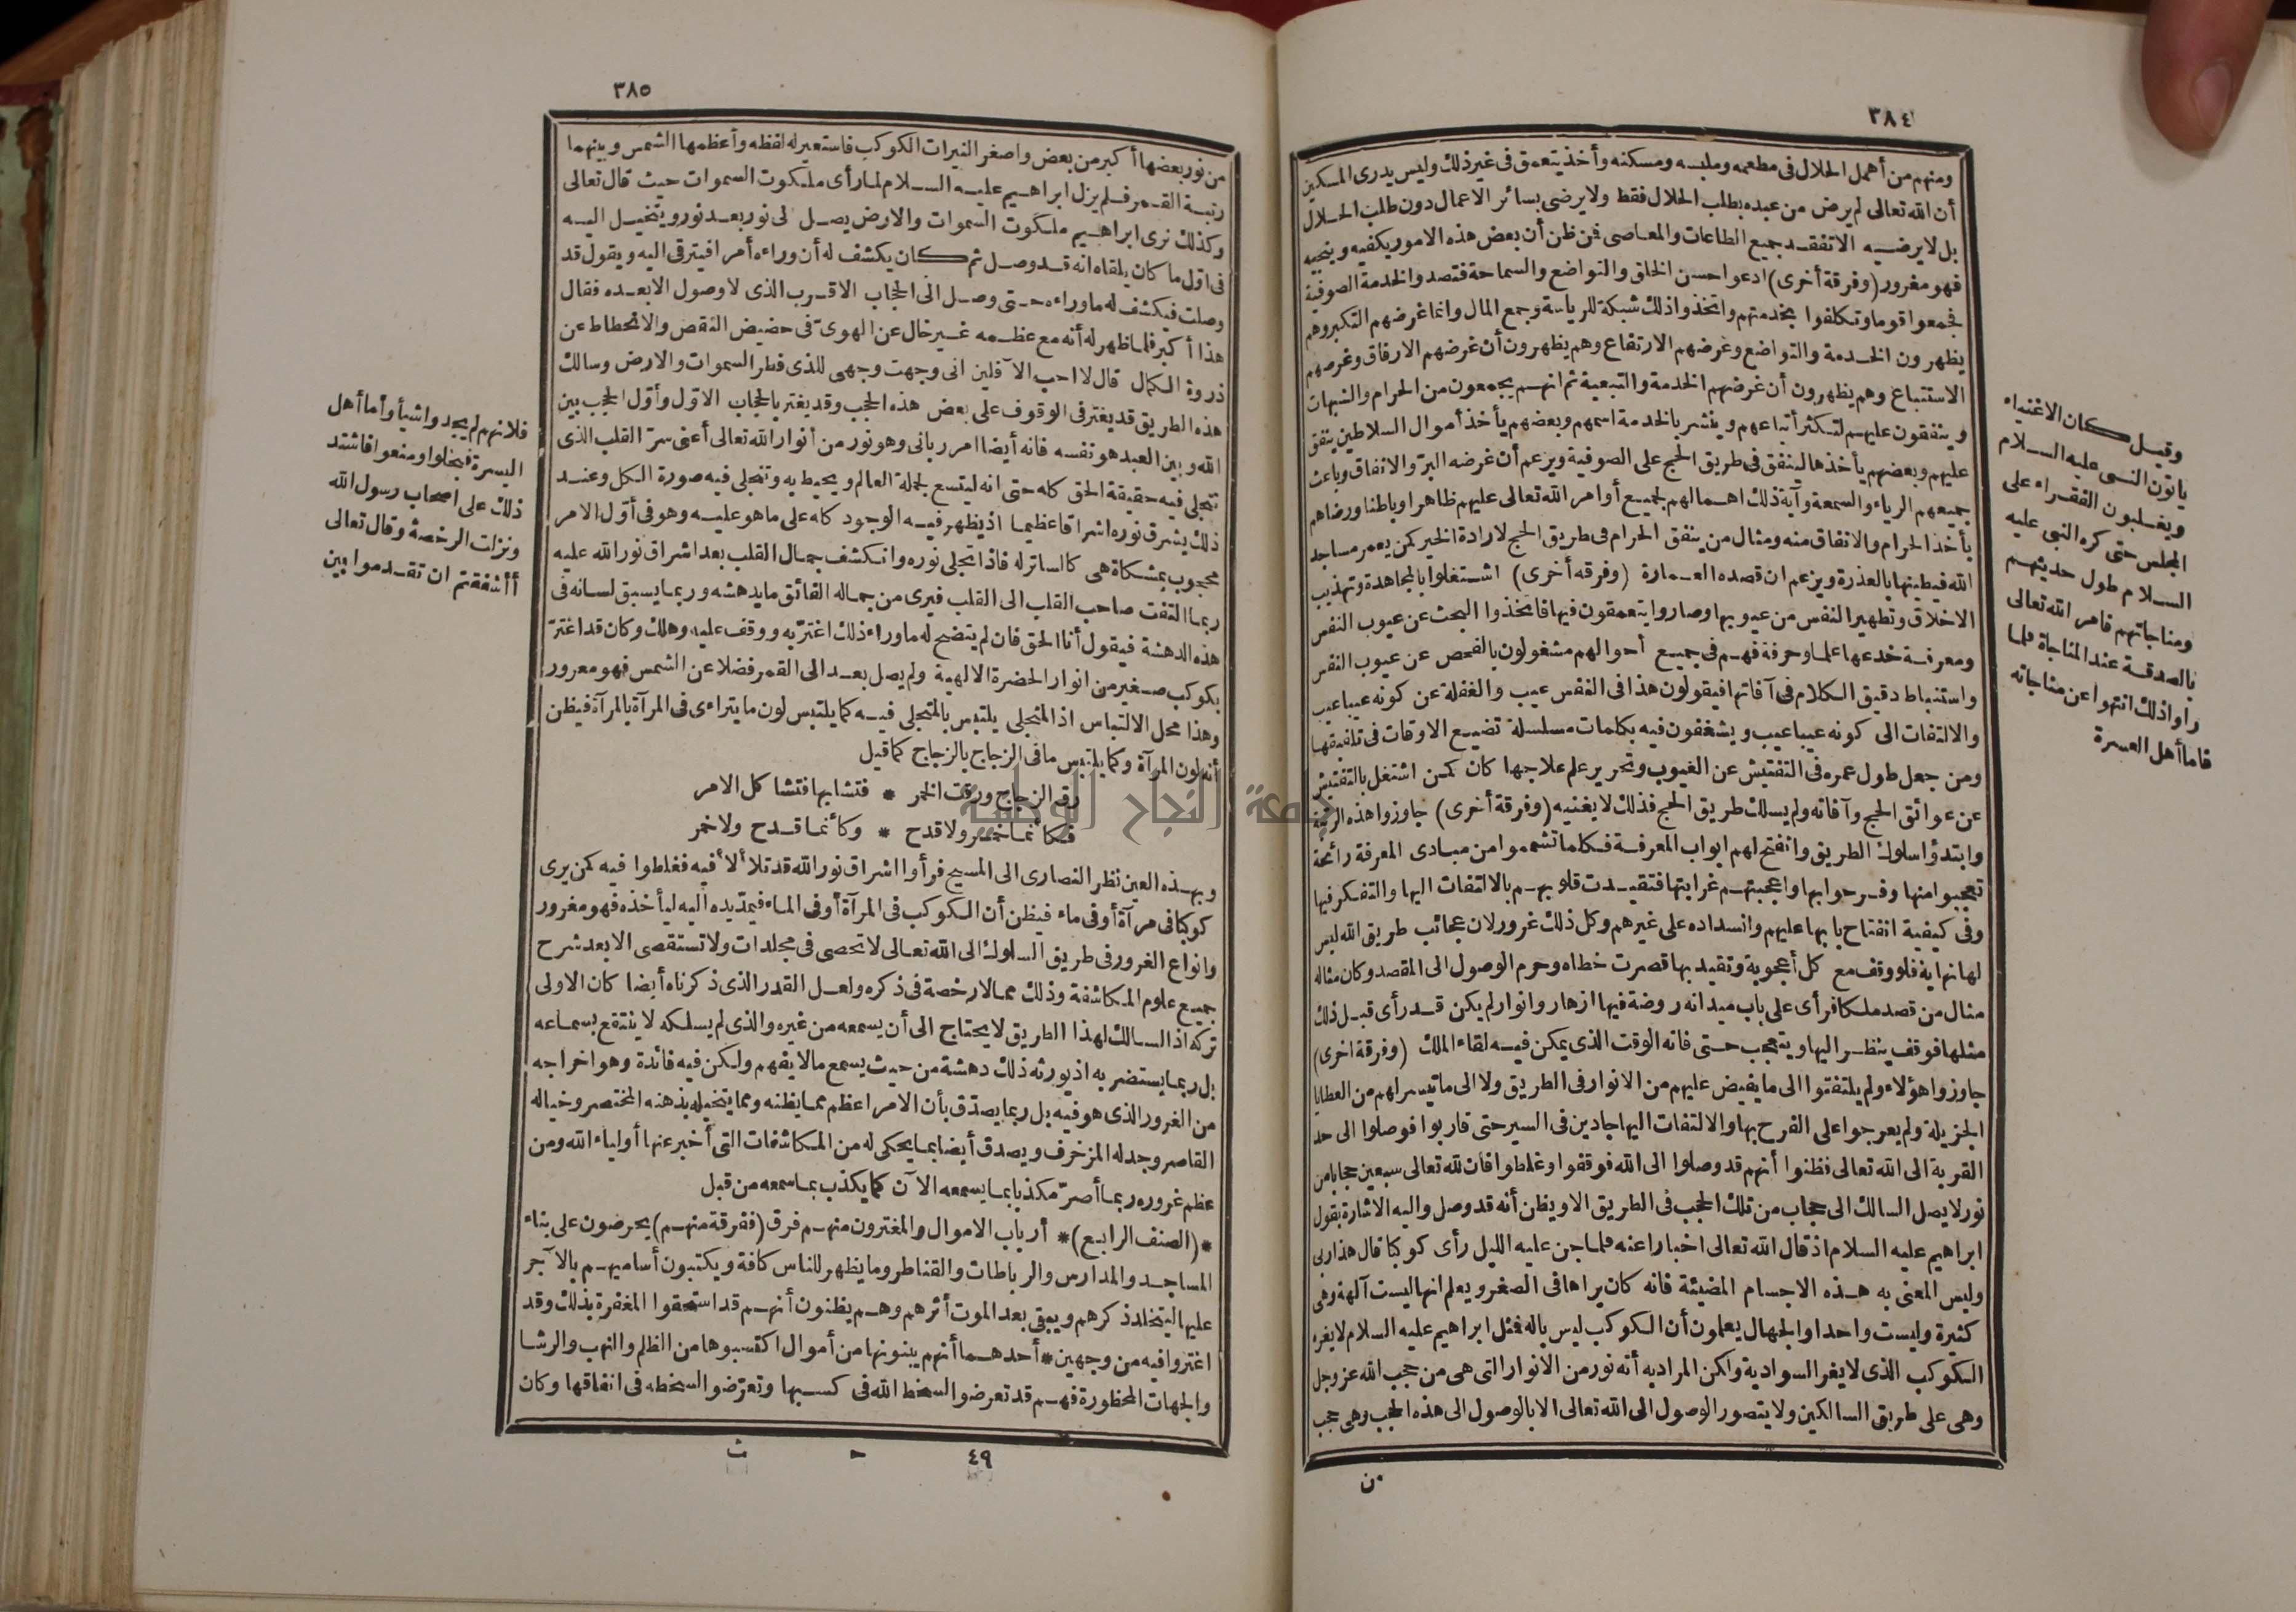 ٣٨٤
ومنهم من أهمل الحلال فى مطعمه وملبسه ومسكنه وأخذ يتعمق فى غير ذلك وليس يدرى المسكين
أن الله تعالى لم يرض من عبده بطلب الحلال فقط ولا يرضى بسائر الاعمال دون طلب الحلال
بل لا يرضيه الا تفقد جميع الطاعات والمعاصى فمن ظن أن بعض هذه الامور يكفيه وينجيه
فهو مغرور (وفرقة أخرى) ادعوا حسن الخلق والتواضع والسماحة فتصدوا لخدمة الصوفية
فجمعوا قوما وتكلفوا بخدمتهم واتخذوا ذلك شبكة للرياسة وجمع المال وانما غرضهم التكبر وهم
يظهرون الخدمة والتواضع وغرضهم الارتفاع وهم يظهرون أن غرضهم الارفاق وغرضهم
الاستتباع وهم يظهرون أن غرضهم الخدمة والتبعية ثم انهم يجمعون من الحرام والشبهات
وينفقون عليهم لتكثر أتباعهم وينشر بالخدمة اسمهم وبعضهم يأخذ أموال السلاطين ينفق
عليهم وبعضهم يأخذها لينفق فى طريق الحج على الصوفية ويزعم أن غرضه البر والانفاق وباعث
جميعهم الرياء والسمعة وآية ذلك اهمالهم لجميع أوامر الله تعالى عليهم ظاهرا وباطنا ورضاهم
بأخذ الحرام والانفاق منه ومثال من ينفق الحرام فى طريق الحج لارادة الخير كمن يعمر مساجد
الله فيطينها بالعذرة ويزعم ان قصده العمارة (وفرقه أخرى) اشتغلوا بالمجاهدة وتهذيب
الاخلاق وتطهير النفس من عيوبها وصاروا يتعمقون فيها فاتخذوا البحث عن عيوب النفس
ومعرفة خدعها علما وحرفة فهم فى جميع أحوالهم مشغولون بالفحص عن عيوب النفس
واستنباط دقيق الكلام فى آفاتها فيقولون هذا فى النفس عيب والغفلة عن كونه عيبا عيب
والالتفات الى كونه عيبا عيب ويشغفون فيه بكلمات مسلسلة تضيع الاوقات فى تلفيقها
ومن جعل طول عمره فى التفتيش عن الغيوب وتحرير علم علاجها كان كمن اشتغل بالتفتيش
عن عوائق الحج وآفاته ولم يسلك طريق الحج فذلك لا يغنيه (وفرقة أخرى) جاوزوا هذه الرتبة
وابتدؤا سلوك الطريق وانفتح لهم ابواب المعرفة فكلما تشمموا من مبادى المعرفة رائحة
تعجبوا منها وفرحوا بها واعجبتهم غرابتها فتقيدت قلوبهم بالالتفات اليها والتفكر فيها
وفى كيفية انفتاح بابها عليهم وانسداده على غيرهم وكل ذلك غرور لان عجائب طريق الله ليس
لها نهاية فلو وقف مع كل أعجوبة وتقيد بها قصرت خطاه وحرم الوصول الى المقصد وكان مثاله
مثال من قصد ملكا فرأى على باب ميدانه روضة فيها ازهار وانوار لم يكن قد رأى قبل ذلك
مثلها فوقف ينظر اليها ويتعجب حتى فاته الوقت الذى يمكن فيه لقاء الملك (وفرقة اخرى)
جاوزوا هؤلاء ولم يلتفتوا الى ما يفيض عليهم من الانوار فى الطريق ولا الى ما تيسر لهم من العطايا
الجزيلة ولم يعرجوا على الفرح بها والالتفات اليها جادين فى السير حتى قاربوا فوصلوا الى حد
القربة الى الله تعالى فظنوا أنهم قد وصلوا الى الله فوقفوا وغلطوا فان لله تعالى سبعين حجابا من
نور لا يصل السالك الى حجاب من تلك الحجب فى الطريق الا ويظن أنه قد وصل واليه الاشارة بقول
ابراهيم عليه السلام اذ قال الله تعالى اخبارا عنه فلما جن عليه الليل رأى كوكبا قال هذا ربى
وليس المعنى به هذه الاجسام المضيئة فانه كان يراها فى الصغر ويعلم انها ليست آلهة وهى
كثيرة وليست واحدا والجهال يعلمون أن الكوكب ليس باله فمثل ابراهيم عليه السلام لا يغره
الكوكب الذى لا يغر السوادية ولكن المراد به أنه نور من الانوار التى هى من حجب الله عز وجل
وهى على طريق السالكين ولا يتصور الوصول الى الله تعالى الا بالوصول الى هذه الحجب وهى حجب
من
وقيل كان الاغنياء
يأتون النبى عليه السلام
ويغلبون الفقراء على
المجلس حتى كره النبى عليه
السلام طول حديثهم
ومناجاتهم فامر الله تعالى
بالصدقة عند المناجاة فلما
راوا ذلك انتهوا عن مناجاته
فاما أهل العسرة
٣٨٥
من نور بعضها أكبر من بعض واصغر النيرات الكوكب فاستعير له لفظه وأعظمها الشمس وبينهما
رتبة القمر فلم يزل ابراهيم عليه السلام لما رأى ملكوت السموات حيث قال تعالى
وكذلك نرى ابراهيم ملكوت السموات والارض يصل لى نور بعد نور ويتخيل اليه
فى اول ما كان يلقاه انه قد وصل ثم كان يكشف له أن وراءه أمرا فيترقى اليه ويقول قد
وصلت فيكشف له ما وراءه حتى وصل الى الحجاب الاقرب الذى لا وصول الا بعده فقال
هذا أكبر فلما ظهر له أنه مع عظمه غير خال عن الهوىّ فى حضيض النقص والانحطاط عن
ذروة الكمال قال لا احب الآفلين انى وجهت وجهى للذى فطر السموات والارض وسالك
هذه الطريق قد يغتر فى الوقوف على بعض هذه الحجب وقد يغتر بالحجاب الاول وأول الحجب بين
الله وبين العبد هو نفسه فانه أيضا امر ربانى وهو نور من أنوار الله تعالى أعنى سر القلب الذى
تتجلى فيه حقيقة الحق كله حتى انه ليتسع لجملة العالم ويحيط به وتتجلى فيه صورة الكل وعند
ذلك يشرق نوره اشراقا عظيما اذ يظهر فيه الوجود كله على ما هو عليه وهو فى أول الامر
محجوب بمشكاة هى كالساتر له فاذا تجلى نوره وانكشف جمال القلب بعد اشراق نور الله عليه
ربما التفت صاحب القلب الى القلب فيرى من جماله الفائق ما يدهشه وربما يسبق لسانه فى
هذه الدهشة فيقول أنا الحق فان لم يتضح له ما وراء ذلك اغتر به ووقف عليه وهلك وكان قد اغتر
بكوكب صغير من انوار الحضرة الالهية ولم يصل بعد الى القمر فضلا عن الشمس فهو معرور
وهذا محل الالتباس اذ المتجلى يلتبس بالمتجلى فيه كما يلتبس لون ما يتراءى فى المرآة بالمرآة فيظن
أنه لون المرآة وكما يلتبس ما فى الزجاج بالزجاج كما قيل
رق الزجاج ورقت الخمر * فتشابها فتشاكل الامر
فكأنما خمر ولا قدح * وكأنما قدح ولا خمر
وبهذه العين نظر النصارى الى المسيح فرأوا اشراق نور الله قد تلألأ فيه فغلطوا فيه كمن يرى
كوكبا فى مرآة أو فى ماء فيظن أن الكوكب فى المرآة أو فى الماء فيمد يده اليه ليأخذه فهو مغرور
وانواع الغرور فى طريق السلوك الى الله تعالى لا تحصى فى مجلدات ولا تستقصى الا بعد شرح
جميع علوم المكاشفة وذلك مما لا رخصة فى ذكره ولعل القدر الذى ذكرناه أيضا كان الاولى
تركه اذ السالك لهذا الطريق لا يحتاج الى أن يسمعه من غيره والذى لم يسلكه لا ينتفع بسماعه
بل ربما يستضر به اذ يورثه ذلك دهشة من حيث يسمع ما لا يفهم ولكن فيه فائدة وهو اخراجه
من الغرور الذى هو فيه بل ربما يصدق بأن الامر اعظم مما يظنه ومما يتخيله بذهنه المختصر وخياله
القاصر وجدله المزخرف ويصدق أيضا بما يحكى له من المكاشفات التى أخبر عنها أولياء الله ومن
عظم غروره ربما أصر مكذبا بما يسمعه الآن كما يكذب بما سمعه من قبل
*(الصنف الرابع)* أرباب الاموال والمغترون منهم فرق (ففرقة منهم) يحرصون على بناء
المساجد والمدارس والرباطات والقناطر وما يظهر للناس كافة ويكتبون أساميهم بالآجر
عليها ليتخلد ذكرهم ويبقى بعد الموت أثرهم وهم يظنون أنهم قد استحقوا المغفرة بذلك وقد
اغتروا فيه من وجهين * أحدهما أنهم يبنونها من أموال اكتسبوها من الظلم والنهب والرشا
والجهات المحظورة فهم قد تعرضوا لسخط الله فى كسبها وتعرضوا لسخطه فى انفاقها وكان
٤٩ ح ث
فلانهم لم يجدوا شيأ وأما أهل
اليسرة فبخلوا ومنعوا فاشتد
ذلك على اصحاب رسول الله
ونزلت الرخصة وقال تعالى
أأشفقتم ان تقدموا بين
جامعة النجاح الوطنية